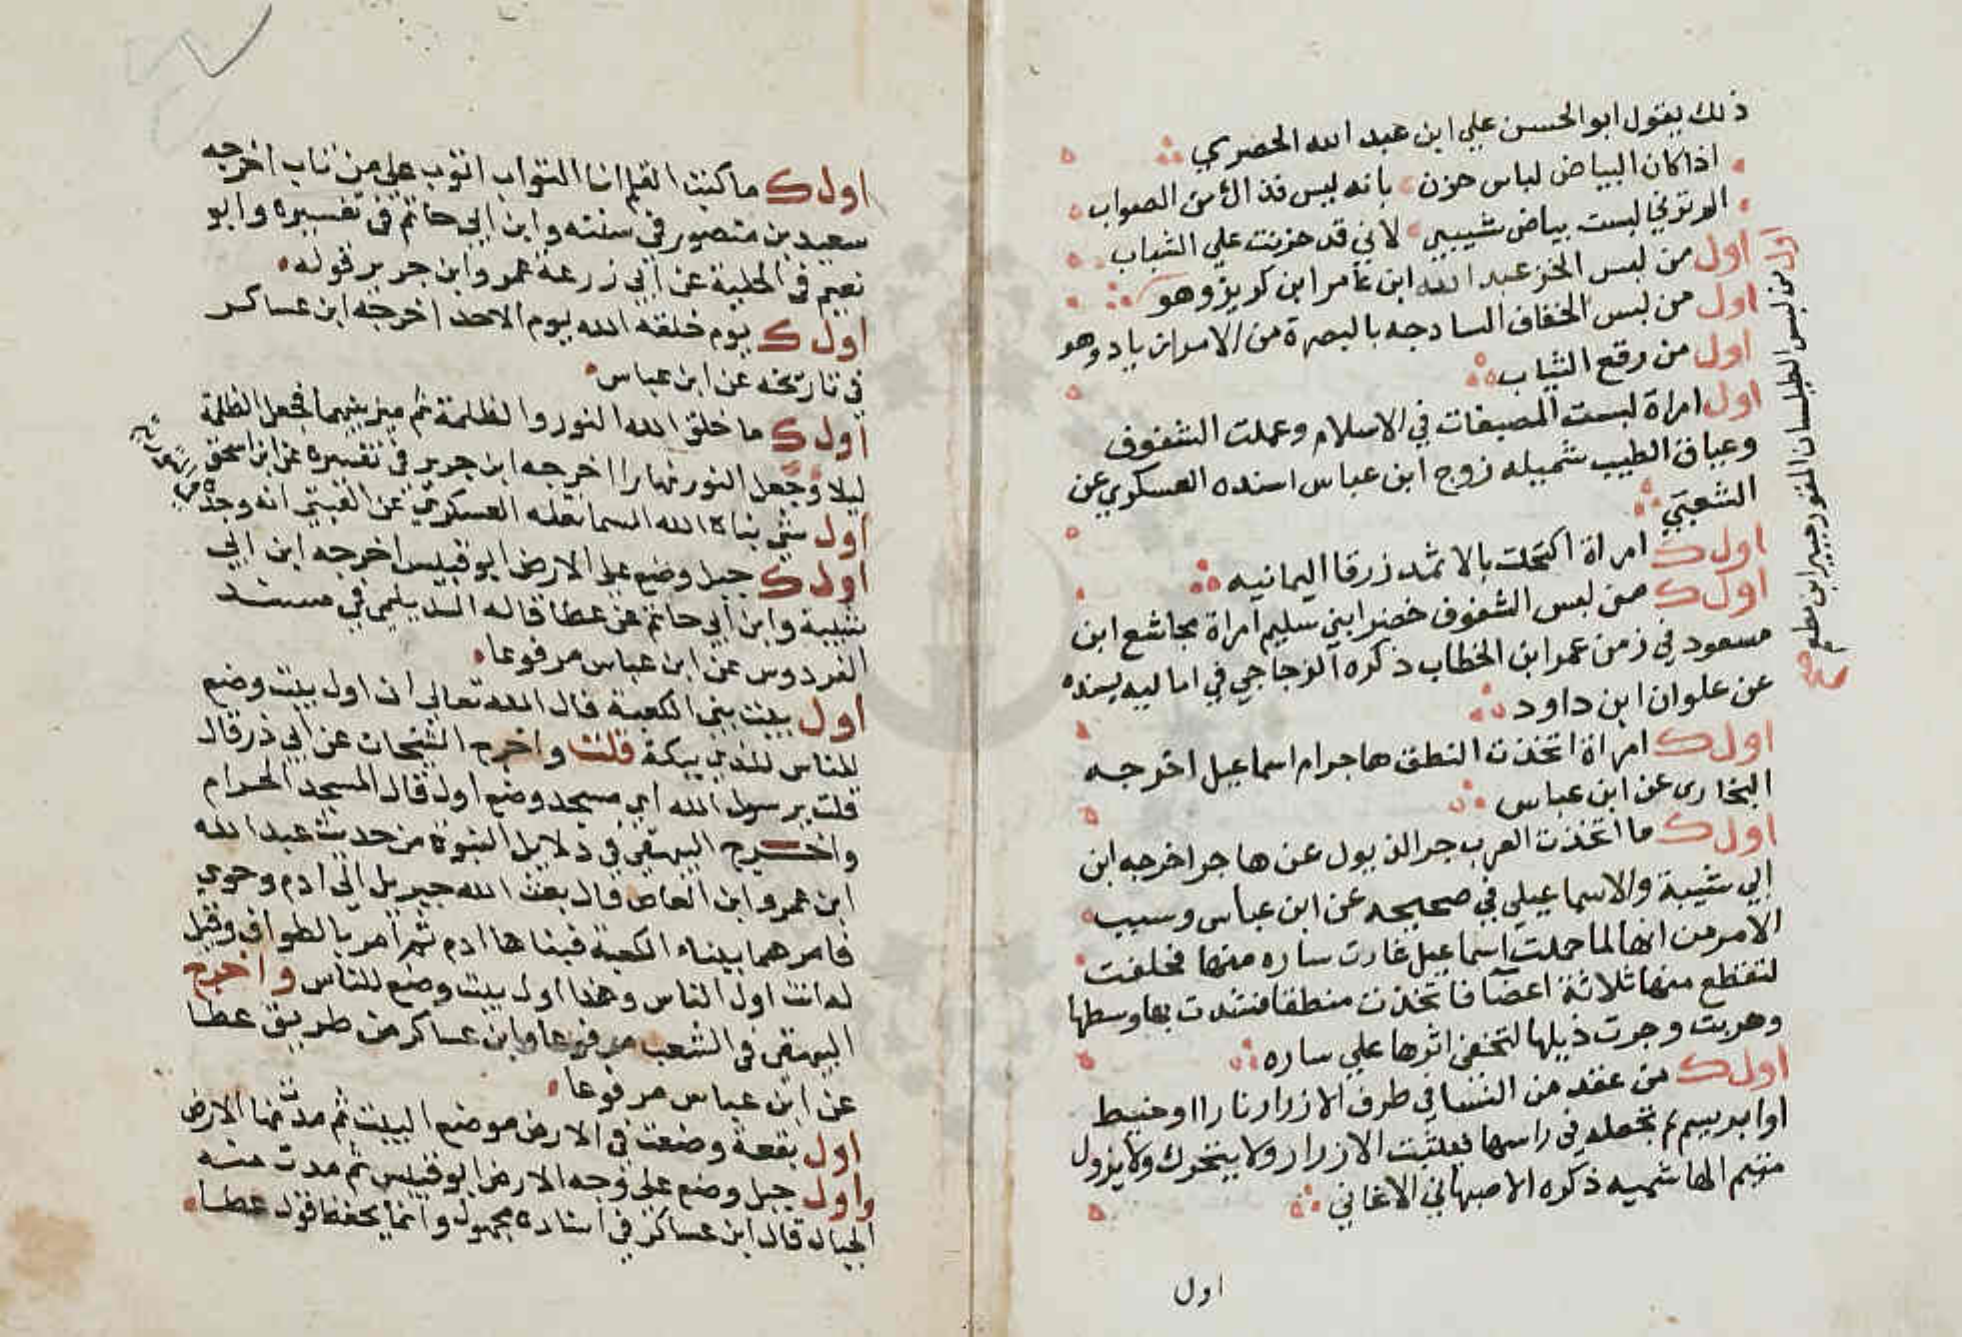 ذلك يقول ابو الحسن علي ابن عبد الله الحضري
اذا كان البياض لباس حزن بانه ليس فذاك من الصواب
الم ترني لبست بياض شيبي لاني قد حزنت علي الشباب
اول من لبس الخز عبد الله ابن عامر ابن كريز وهو
اول من لبس الخفاف السادجه بالبصرة من الامراء زياد وهو
اول من رقع الثياب
اول امراة لبست المصبغات في الاسلام وعملت الشفوف
وعباق الطيب شميله زوج ابن عباس اسنده العسكري عن
الشعبي
اول ك امراة اكتحلت بالاثمد زرقا اليمانيه
اول ك من لبس الشفوف خضرا بني سليم امراة مجاشع ابن
مسعود في زمن عمر ابن الخطاب ذكره الزجاجي في اماليه يسنده
عن علوان ابن داود
اول ك امراة اتخذت النطق هاجر ام اسماعيل اخرجه
البخاري عن ابن عباس
اول ك ما اتخذت العرب جر الذيول عن هاجر اخرجه ابن
ابي شيبة والاسماعيلي في صحيحه عن ابن عباس وسبب
الامر من انها لما حملت اسماعيل غارت ساره منها فحلفت
لتقطع منها ثلاثة اعضا فاتخذت منطقا فشدت بها وسطها
وهربت وجرت ذيلها لتخفي اثرها علي ساره
اول ك من عقد من النسا في طرف الازار نارا او خيط
او ابريسم ثم تجعله في راسها فيثبت الازار ولا يتحرك ولا يزول
متيم الهاشميه ذكره الاصبهاني الاغاني
اول
اول من لبس الطيلسان المقور جبير ابن مطعم
اول ك ما كتب القلم انا التواب اتوب علي من تاب اخرجه
سعيد بن منصور في سننه وابن ابي حاتم في تفسيره وابو
نعيم في الحلية عن ابي زرعة عمرو ابن جرير قوله
اول ك يوم خلقه الله يوم الاحد اخرجه ابن عساكر
في تاريخه عن ابن عباس
اول ك ما خلق الله النور والظلمة ثم ميز بينهما فجعل الظلمة
ليلا وجعل النور نهارا اخرجه ابن جرير في تفسيره عن ابن اسحق
اول شي بناه الله السما نقله العسكري عن القتبي انه وجده
في التوراة
اول ك جبل وضع علي الارض ابو قبيس اخرجه ابن ابي
شيبة وابن ابي حاتم عن عطا قاله الديلمي في مسند
الفردوس عن ابن عباس مرفوعا
اول بيت بني الكعبة قال الله تعالي ان اول بيت وضع
للناس للذي ببكة قلت واخرج الشيخان عن ابي ذر قال
قلت يرسول الله اي مسجد وضع اول قال المسجد الحرام
واخرج البيهقي في دلايل النبوة من حديث عبد الله
ابن عمرو ابن العاص قال بعث الله جبريل الي ادم وحوي
فامرهما ببناء الكعبة فبناها ادم ثم امر بالطواف وقيل
له انت اول الناس وهذا اول بيت وضع للناس واخرج
البيهقي في الشعب مرفوعا وابن عساكر من طريق عطا
عن ابن عباس مرفوعا
اول بقعة وضعت في الارض موضع البيت ثم مدت منها الارض
واول جبل وضع علي وجه الارض ابو قبيس ثم مدت منه
الجبال قال ابن عساكر في اسناده مجهول وانما يحفظ قول عطا